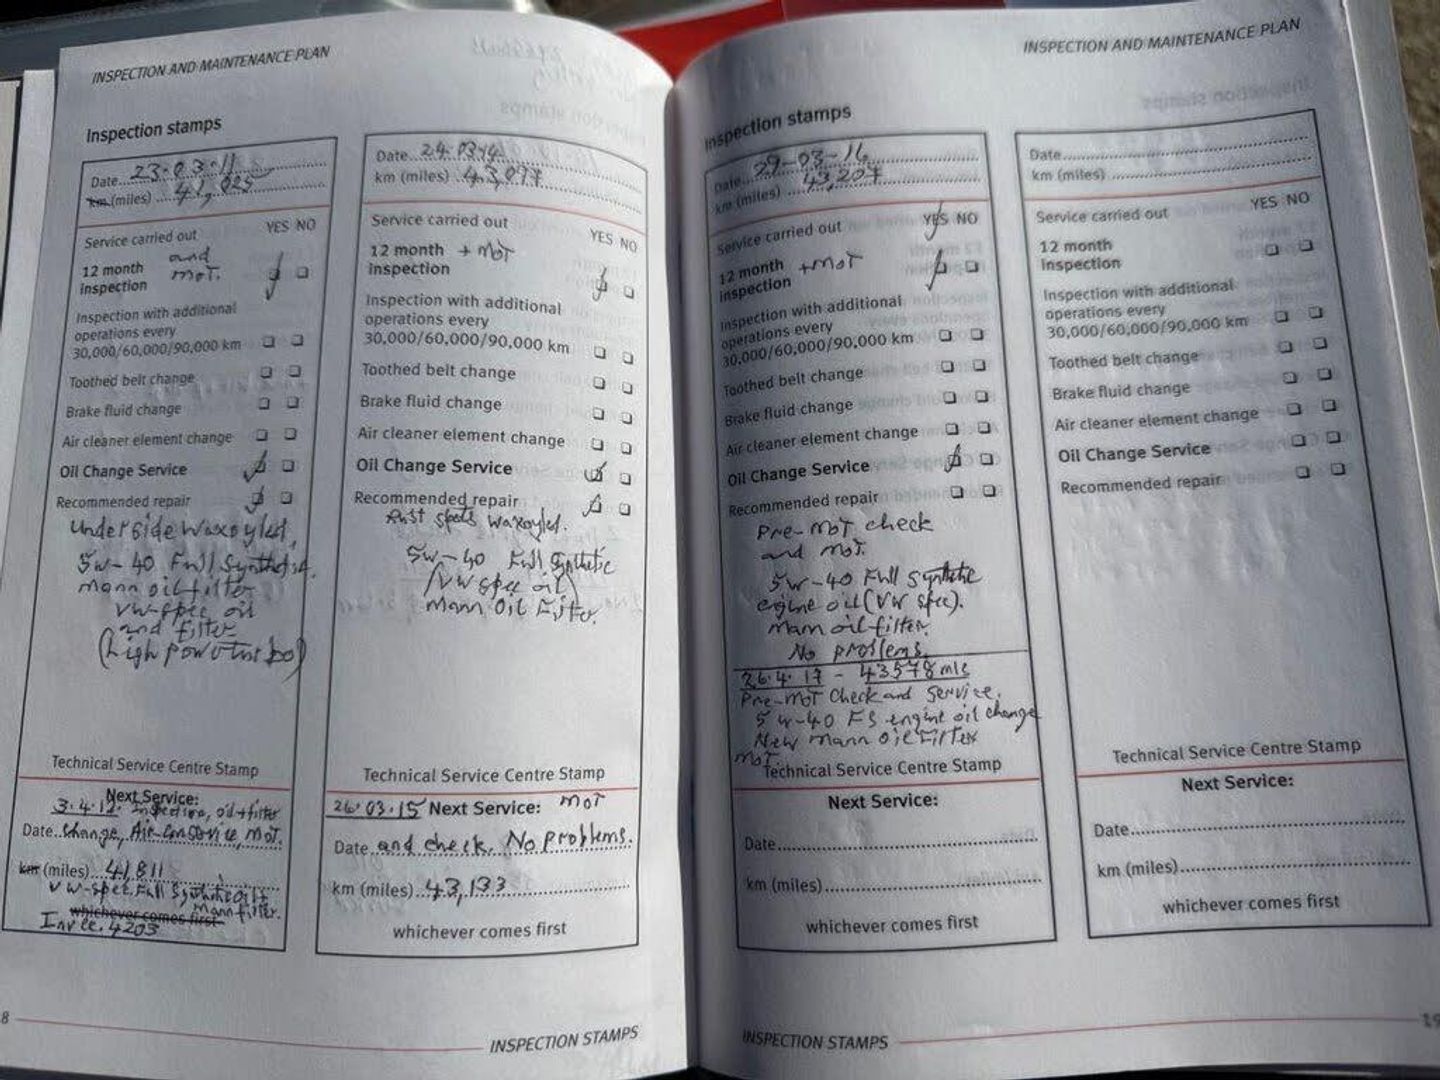 INSPECTION AND MAINTENANCE PLAN
Inspection stamps
Date 23.03.11
km (miles) 41,025
Service carried out YES NO
12 month and
inspection MOT.
Inspection with additional
operations every
30,000/60,000/90,000 km
Toothed belt change
Brake fluid change
Air cleaner element change
Oil Change Service
Recommended repair
Underside waxoyled,
5W-40 Full Synthetic.
Mann oil filter
VW-spec oil
and filter
Technical Service Centre Stamp
Next Service:
3.4.12. Inspection, oil+filter
Date change, Air-con service, MOT.
km (miles) 41,811
VW-spec. Full Synthetic oil+
Mann filter.
whichever comes first
4203
Date 24.03.14
km (miles) 43,097
Service carried out YES NO
12 month + MOT
inspection
Inspection with additional
operations every
30,000/60,000/90,000 km
Toothed belt change
Brake fluid change
Air cleaner element change
Oil Change Service
Recommended repair
Rust spots waxoyled.
5W-40 Full Synthetic
(VW spec oil)
Mann Oil Filter.
Technical Service Centre Stamp
26.03.15 Next Service: MOT
Date and check. No problems.
km (miles) 43,133
whichever comes first
8
INSPECTION STAMPS
INSPECTION AND MAINTENANCE PLAN
Inspection stamps
Date 29-03-16
km (miles) 43,207
Service carried out YES NO
12 month + MOT
inspection
Inspection with additional
operations every
30,000/60,000/90,000 km
Toothed belt change
Brake fluid change
Air cleaner element change
Oil Change Service
Recommended repair
Pre-MOT check
and MOT.
5W-40 Full Synthetic
engine oil (VW spec).
Mann oil filter.
No problems.
26.4.17 - 43578 mls
Pre-MOT Check and Service.
5W-40 FS engine oil change
New Mann Oil Filter
MOT
Technical Service Centre Stamp
Next Service:
Date
km (miles)
whichever comes first
Date
km (miles)
Service carried out YES NO
12 month
inspection
Inspection with additional
operations every
30,000/60,000/90,000 km
Toothed belt change
Brake fluid change
Air cleaner element change
Oil Change Service
Recommended repair
Technical Service Centre Stamp
Next Service:
Date
km (miles)
whichever comes first
INSPECTION STAMPS
19